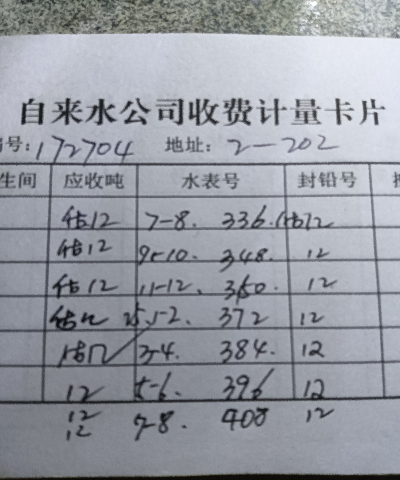 自来水公司收费计量卡片
号: 172704 地址: 2-202
生间 应收吨 水表号 封铅号
估12 7-8. 336. 估12
估12 9-10. 348. 12
估12 11-12. 360. 12
估12 25.1-2. 372 12
估12 3-4. 384. 12
12 5-6. 396 12
12 7-8. 408 12
12